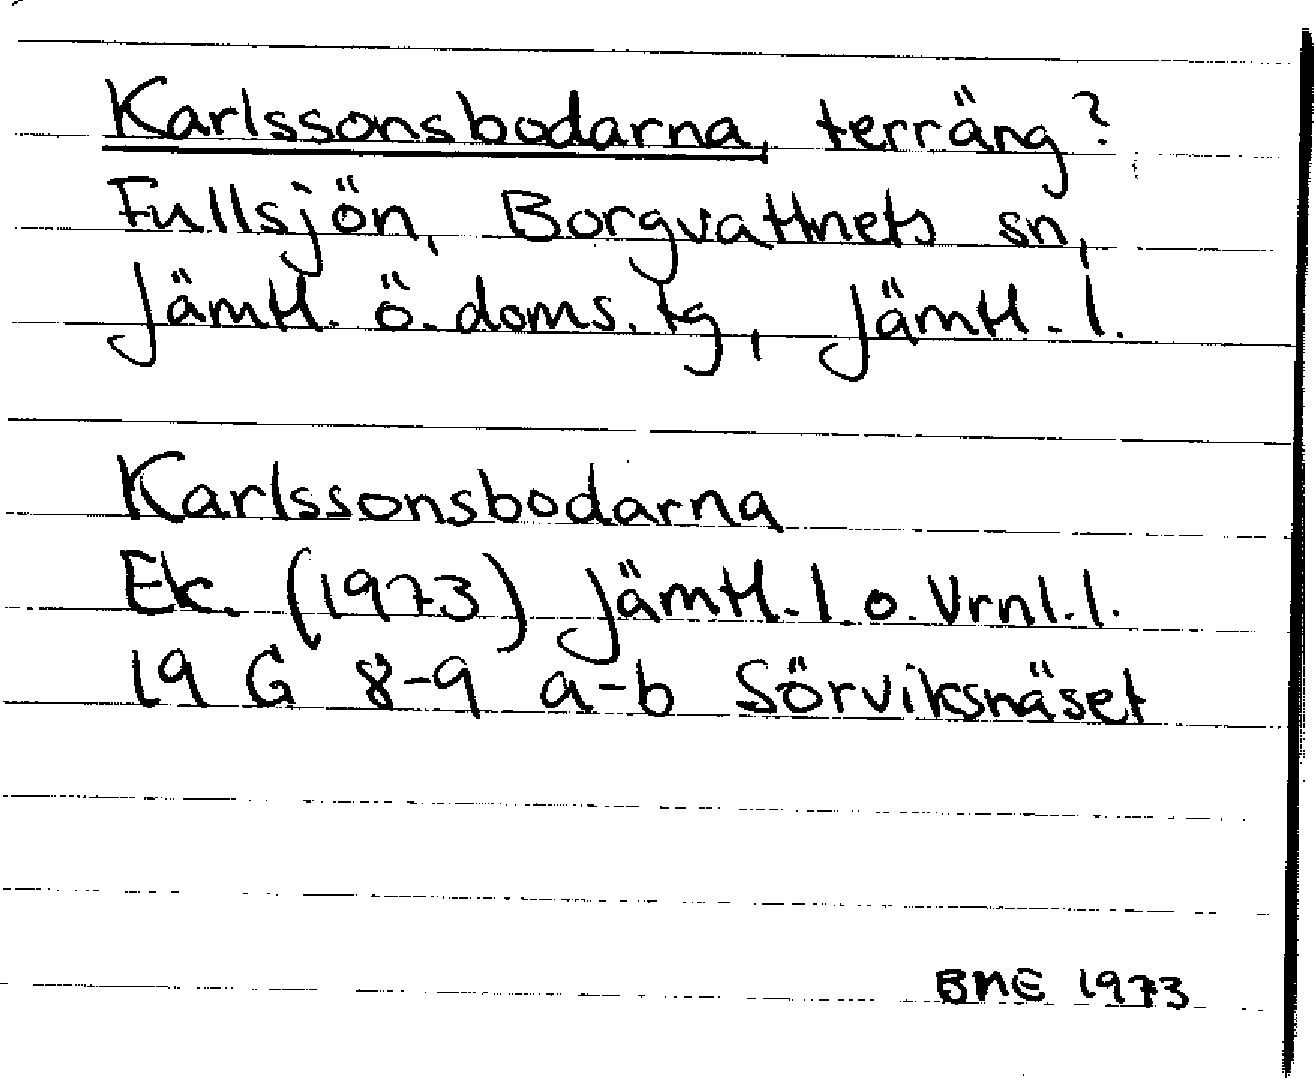 Karlssonsbodarna, terräng?
Fullsjön, Borgvattnets sn,
Jämtl. ö. doms. tg, Jämtl. l.
Karlssonsbodarna
Ek. (1973) Jämtl. l. o. Vrnl. l.
19 G 8-9 a-b Sörviksnäset
BNE 1973